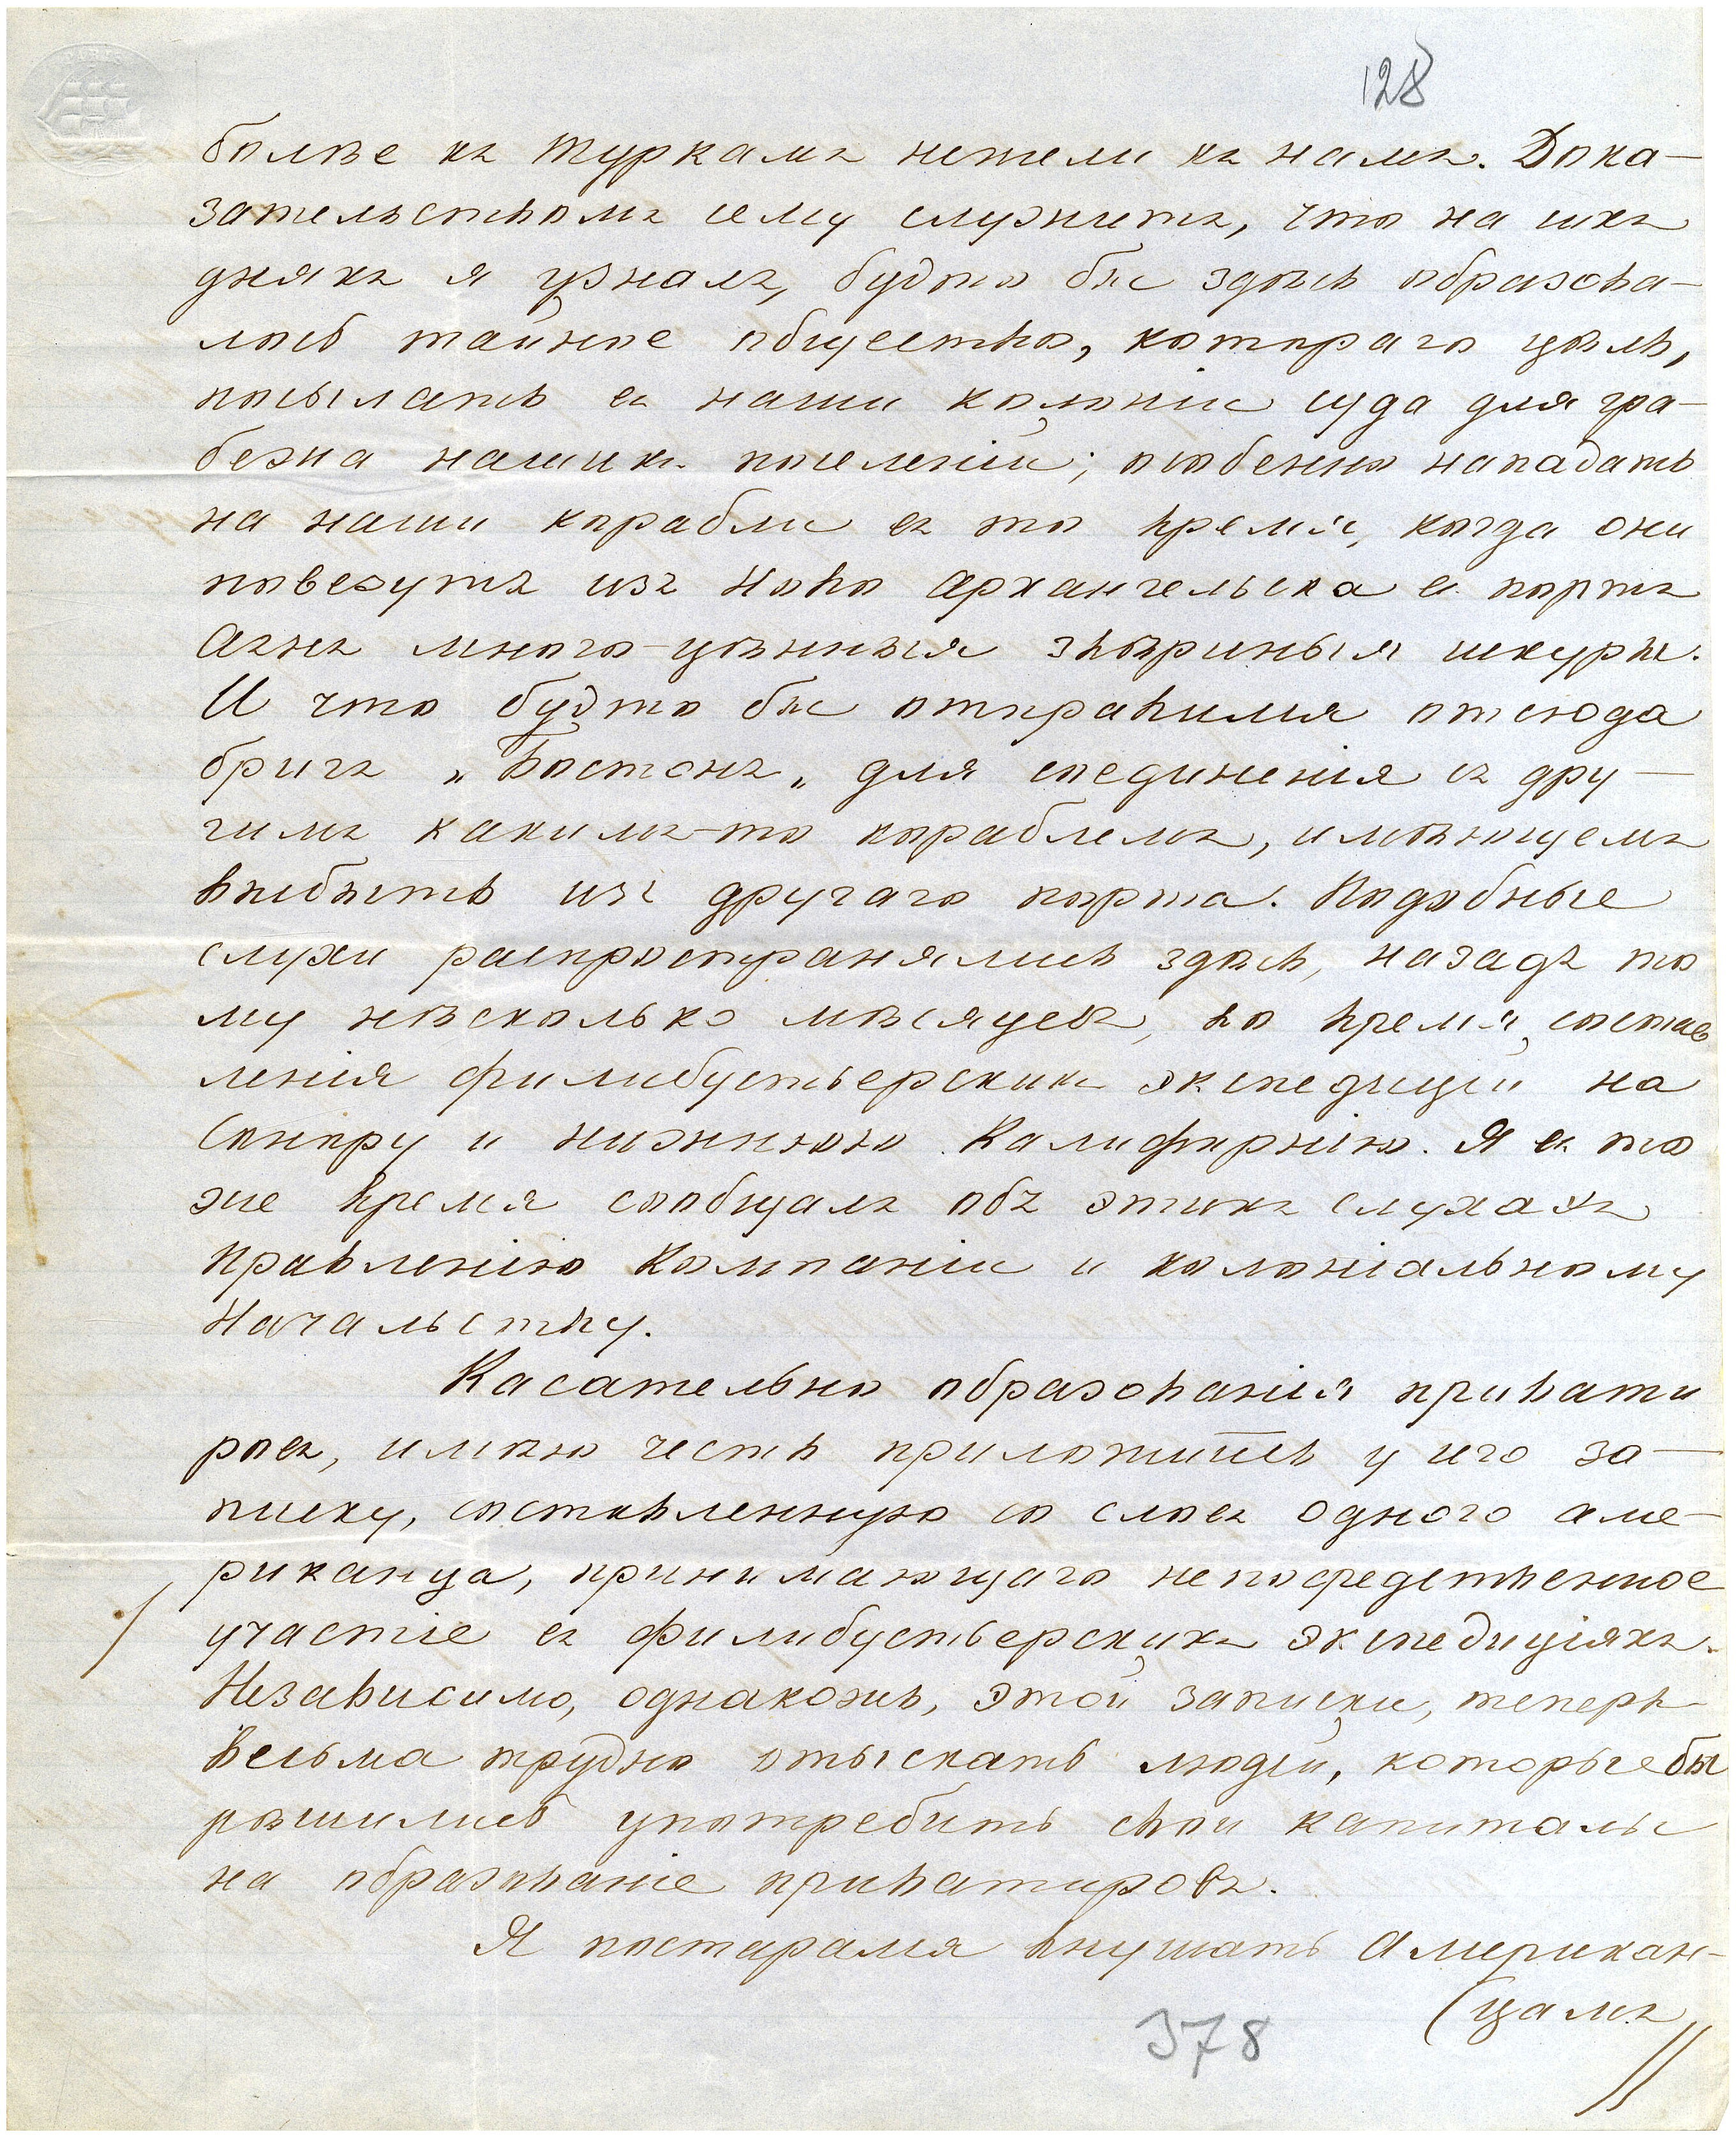 128
болѣе къ Туркамъ нежели къ намъ. Дока-
зательствомъ сему служитъ, что на сихъ
дняхъ я узналъ, будто бы здѣсь образова-
лось тайное общество, котораго цѣль,
посылать въ наши колоніи суда для гра-
бежа нашихъ поселеній; особенно нападать
на наши корабли въ то время, когда они
повезутъ изъ Ново Архангельска въ портъ
Аянъ много-цѣнныя звѣриныя шкуры.
И что будто бы отправился отсюда
бригъ „Бостонъ„ для соединенія съ дру-
гимъ какимъ-то кораблемъ, имѣющемъ
выбыть изъ другаго порта. Подобные
слухи распространялись здѣсь, назадъ то
му нѣсколько мѣсяцевъ, во время состав
ленія филибустьерскихъ экспедицій на
Сонору и нижнюю Калифорнію. Я въ то
же время сообщалъ объ этихъ слухахъ
Правленію Компаніи и колоніальному
Начальству.
Касательно образованія привати
ровъ, имѣю честь приложить у сего за-
писку, составленную со словъ одного аме-
риканца, принимающаго непосредственное
участіе въ филибустьерскихъ экспедиціяхъ.
Независимо, однакожь, этой записки, теперь
весьма трудно отыскать людей, которые бы
рѣшились употребить свои капиталы
на образованіе приватировъ.
Я постарался внушать Американ-
(цамъ
378